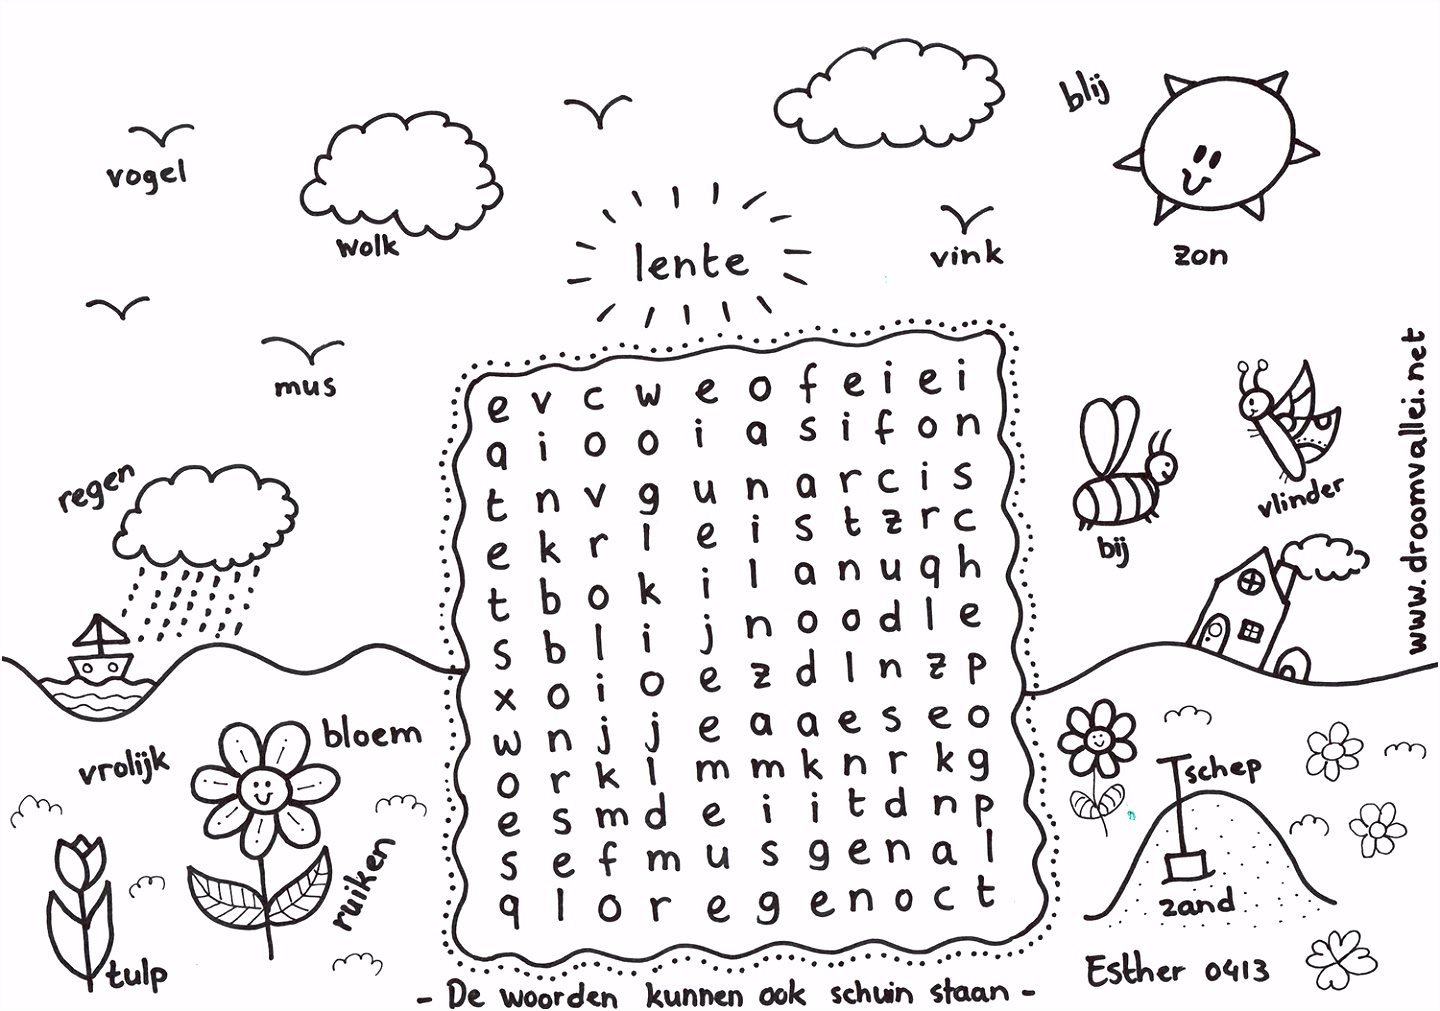 blij
vogel
wolk
lente
vink
zon
mus
regen
vlinder
bij
www.droomvallei.net
e v c w e o f e i e i
a i o o i a s i f o n
t n v g u n a r c i s
e k r l e i s t z r c
t b o k i l a n u q h
s b l i j n o o d l e
x o i o e z d l n z p
w n j j e a a e s e o
o r k l m m k n r k g
e s m d e i i t d n p
s e f m u s g e n a l
q l o r e g e n o c t
bloem
vrolijk
schep
ruiken
zand
tulp
Esther 0413
- De woorden kunnen ook schuin staan -